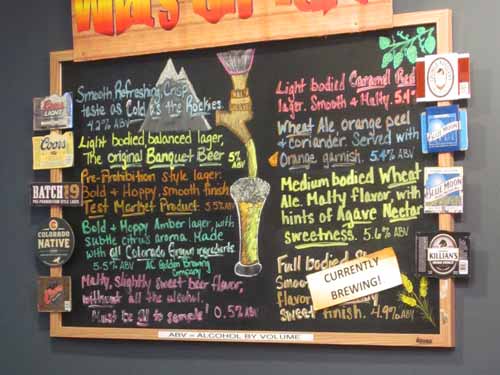 What's On Tap?
Smooth Refreshing, Crisp
taste as Cold as the Rockies.
4.2% ABV
Light bodied, balanced lager,
The original Banquet Beer 5%
ABV
Pre-Prohibition style lager.
Bold + Hoppy, smooth finish
Test Market Product 5.5% ABV
Bold + Hoppy Amber lager, with
subtle citrus aroma. Made
with all Colorado Grown ingredients.
5.5% ABV AC Golden Brewing
Company
Malty, slightly sweet beer flavor,
without all the alcohol.
Must be 21 to sample! 0.5% ABV
Light bodied Caramel Red
lager. Smooth + Malty. 5.4%
Wheat Ale, orange peel
+ coriander. Served with
Orange garnish. 5.4% ABV
Medium bodied Wheat
Ale. Malty flavor, with
hints of Agave Nectar
sweetness. 5.6% ABV
Full bodied
Smoo
flavor
Sweet finish. 4.9% ABV
CURRENTLY
BREWING!
Coors
LIGHT
Coors
BATCH 19
COLORADO
NATIVE
BLUE MOON
BLUE MOON
KILLIAN'S
ABV - ALCOHOL BY VOLUME